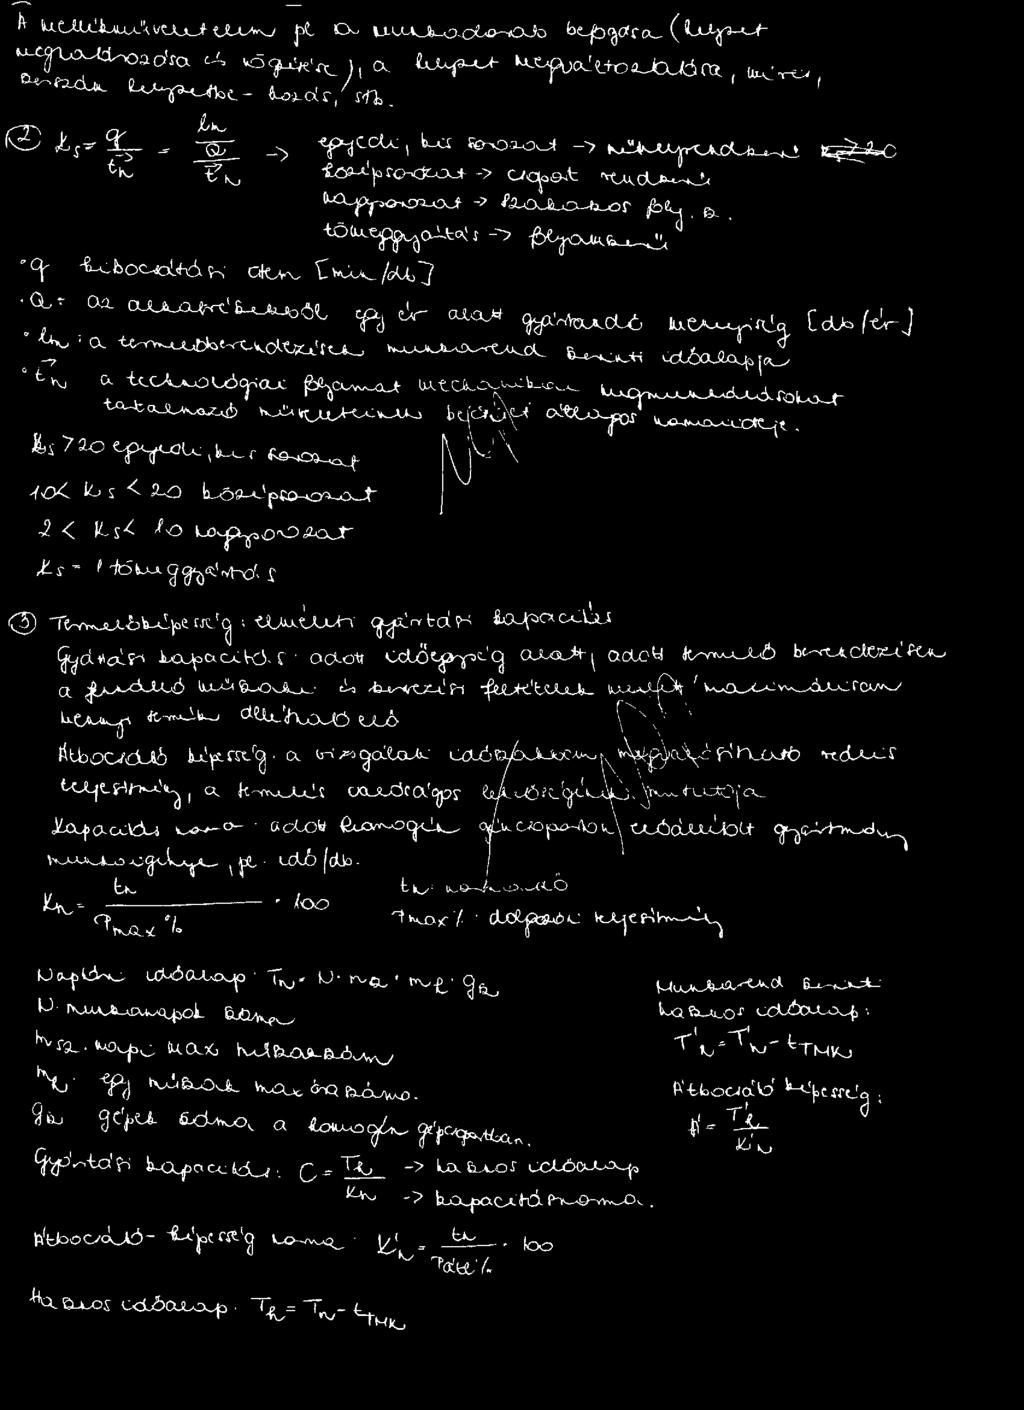 A mellékműveletelem pl a munkadarab befogása (helyzet
meghatározása és rögzítése), a helyzet megváltoztatása, mérés,
szerszám helyzetbe-hozás, stb.
② Ks = q / t̄n = (Im / Q) / t̄n -> egyedi, kis sorozat -> műhelyrendszerű
középsorozat -> csoport rendszerű
nagysorozat -> szakaszos foly. r.
tömeggyártás -> folyamszerű
• q kibocsátási ütem [min/db]
• Q: az alkatrészekből egy év alatt gyártandó mennyiség [db/év]
• Im: a termelőberendezések munkarend szerinti időalapja
• t̄n a technológiai folyamat mechanikus megmunkálásokat
tartalmazó műveleteinek átlagos normaideje.
Ks > 20 egyedi, kis sorozat
10 < Ks < 20 középsorozat
2 < Ks < 10 nagysorozat
Ks = 1 tömeggyártás
③ Termelőképesség: elméleti gyártási kapacitás
Gyártási kapacitás: adott időegység alatt, adott termelő berendezésen
a fennálló műszaki és szervezési feltételek mellett maximálisan
mennyi termék állítható elő
Átbocsátó képesség: a vizsgálati időszakban megvalósítható reális
teljesítmény, a termelés valóságos lehetőségének mutatója
Kapacitás norma: adott homogén gépcsoporton előállított gyártmány
munkaigénye, pl. idő/db.
Kn = tn / Pmax% · 100
tn: normaidő
Pmax%: dolgozói teljesítmény
Naptári időalap: Tn = N · nsz · mh · gsz
N: munkanapok száma
msz: napi max műszakszám
mh: egy műszak max óraszáma.
gsz gépek száma a homogén gépcsoportban.
Gyártási kapacitás: C = Th / Kn -> hasznos időalap
-> kapacitásnorma.
Átbocsátó-képesség norma: K'n = tn / Pátl% · 100
Hasznos időalap: Th = Tn - tTMK
Munkarend szerinti
hasznos időalap:
T'h = T'n - tTMK
Átbocsátó képesség:
Á = T'h / K'n